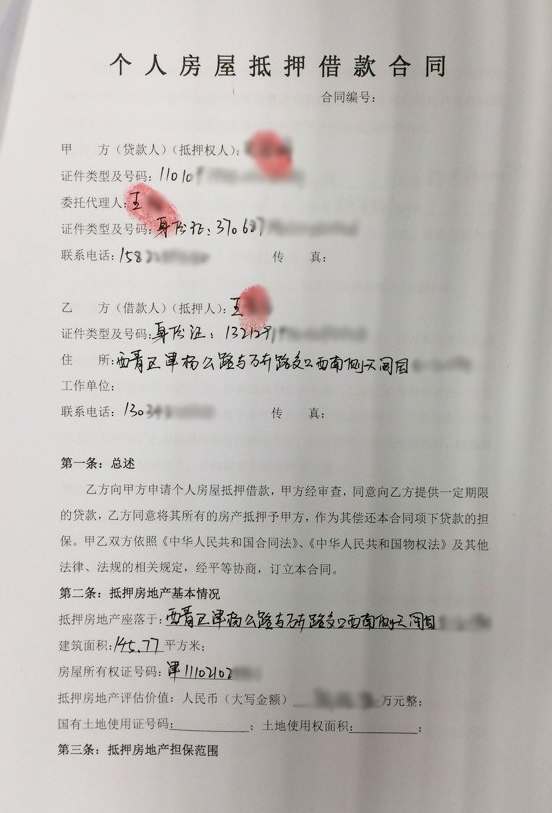 个人房屋抵押借款合同
合同编号：
甲　　方（贷款人）（抵押权人）：
证件类型及号码：110109
委托代理人：王
证件类型及号码：身份证：370627
联系电话：1582　　传　　真：
乙　　方（借款人）（抵押人）：王
证件类型及号码：身份证：132129
住　　所：西青区津杨公路与万卉路交口西南侧天同园
工作单位：
联系电话：13034　　传　　真：
第一条：总述
乙方向甲方申请个人房屋抵押借款，甲方经审查，同意向乙方提供一定期限
的贷款，乙方同意将其所有的房产抵押予甲方，作为其偿还本合同项下贷款的担
保。甲乙双方依照《中华人民共和国合同法》、《中华人民共和国物权法》及其他
法律、法规的相关规定，经平等协商，订立本合同。
第二条：抵押房地产基本情况
抵押房地产座落于：西青区津杨公路与万卉路交口西南侧天同园
建筑面积：145.77平方米；
房屋所有权证号码：津11102102
抵押房地产评估价值：人民币（大写金额）万元整；
国有土地使用证号码：____________；土地使用权面积：__________；
第三条：抵押房地产担保范围